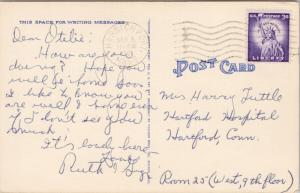 THIS SPACE FOR WRITING MESSAGES
Dear Otelie:
How are you
doing? Hope you
will be home soon
I like to know you
are well & home even
if I don't see you
much.
It's lovely here
Love
Ruth &
POST CARD
U.S. POSTAGE 3¢
LIBERTY
Mrs Harry Tuttle
Hartford Hospital
Hartford, Conn.
Room 25 (West, 9th floor)